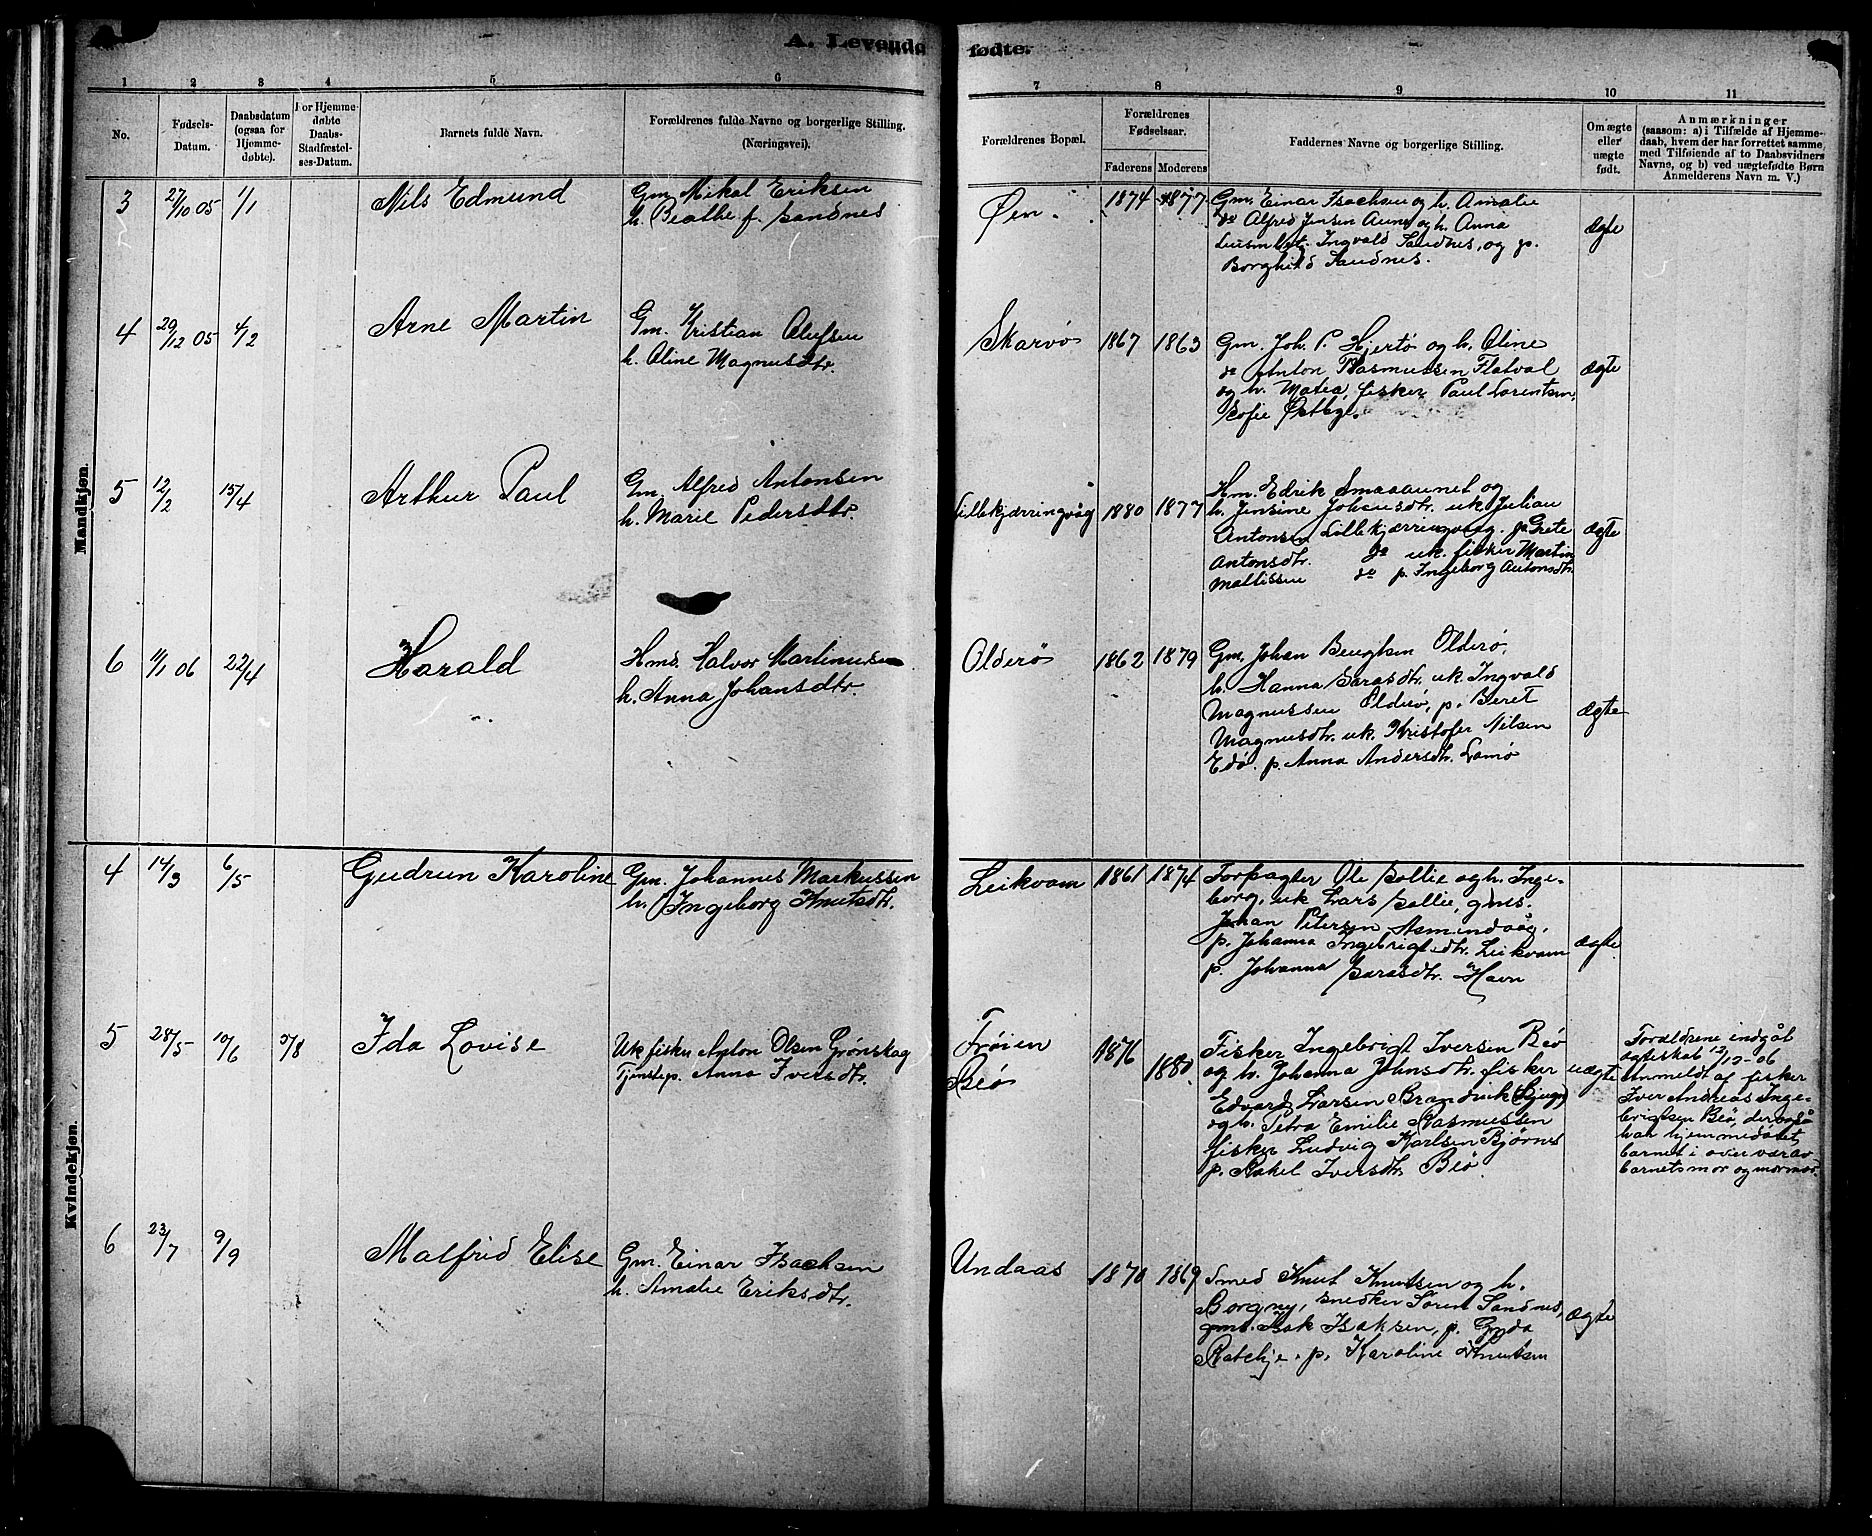 A. Levende fødte.
1 2 3 4 5 6 7 8 9 10 11
No.
Fødsels-
Datum.
Daabsdatum
(ogsaa for
Hjemme-
døbte).
For Hjemme-
døbte
Daabs-
Stadfæstel-
ses-Datum.
Barnets fulde Navn.
Forældrenes fulde Navne og borgerlige Stilling.
(Næringsvei).
Forældrenes Bopæl.
Forældrenes
Fødselsaar.
Faderens Moderens
Faddernes Navne og borgerlige Stilling.
Om ægte
eller
uægte
født.
Anmærkninger
(saasom: a) i Tilfælde af Hjemme-
daab, hvem der har forrettet samme,
med Tilføiende af to Daabsvidners
Navne, og b) ved uægtefødte Børn
Anmelderens Navn m. V.)
Mandkjøn.
3 27/10 05 1/1 Nils Edmund
Gm. Mikal Eriksen
h. Beathe f. Sandnes
Øen. 1874 1877
Gm. Einar Isachsen og h. Amalie
do Alfred Jensen Aune og h. Anna
Ingvald Sandnes, og p.
Borghild Sandnes.
ægte
4 29/12 05 4/2 Arne Martin
Gm. Kristian Olufsen
h. Oline Magnusdtr.
Skarvø 1867 1863
Gm. Joh. P. Hjertø og h. Oline
do Anton Rasmussen Flatval
og h. Matea, fisker Paul Lorentsen,
Sofie Østbye.
ægte
5 12/2 15/4 Arthur Paul
Gm. Alfred Antonsen
h. Marie Pedersdtr.
Lillekjærringvåg 1880 1877
Hm. Edrik Smaaaunet og
h. Jensine Johansdtr. uk Julian
Antonsen Lillekjærringvaag. p. Grete
Antonsdtr. do uk. fisker Martin
Mattissen do p. Ingeborg Antonsdtr.
ægte
6 11/1 06 22/4 Harald
Hmd. Halvor Martinussen
h. Anna Johansdtr.
Olderø 1862 1879
Gm. Johan Bengtsen Olderø,
h. Hanna Larasdtr. uk Ingvald
Magnussen Olderø, p. Beret
Magnusdtr. uk. Kristofer Nilsen
Edø. p. Anna Andersdtr. Lamø
ægte
Kvindekjøn.
4 14/3 6/5 Gudrun Karoline
Gm. Johannes Markussen
h. Ingeborg Knutsdtr.
Leikvam 1861 1874
Forpagter Ole Sollie og h. Inge-
borg, uk Lars Sollie, gms.
Johan Petersen Asmindvåg,
p. Johanna Ingebrigtsdtr. Leikvam
p. Johanna Larasdtr. Havn
ægte
5 28/5 10/6 5/8 Ida Lovise
Uk fisker Anton Olsen Grønskag
Tjenstep. Anna Iversdtr.
Frøien
Beø
1876
1880.
Fisker Ingebrigt Iversen Beø
og h. Johanna Johnsdtr. fisker
Edvard Larsen Brandvik (Bjugn)
og h. Petra Emilie Rasmussen
fisker Ludvig Karlsen Bjørnes
p. Rakel Iversdtr. Beø
uægte
Forældrene indgåt
ægteskab 12/12-06
Anmeldt af fisker
Iver Andreas Inge-
brigtsen Beø, der også
har hjemmedøbt
barnet i overvær av
barnets mor og mormor.
6 23/7 9/9 Malfrid Elise
Gm. Einar Isachsen
h. Amalie Eriksdtr.
Undaas 1870 1869
Smed Knut Knutsen og h.
Borgny, snedker Søren Sandnes,
gms. Isak Isaksen, p. Gyda
Ratchje. p. Karoline Knutsen
ægte